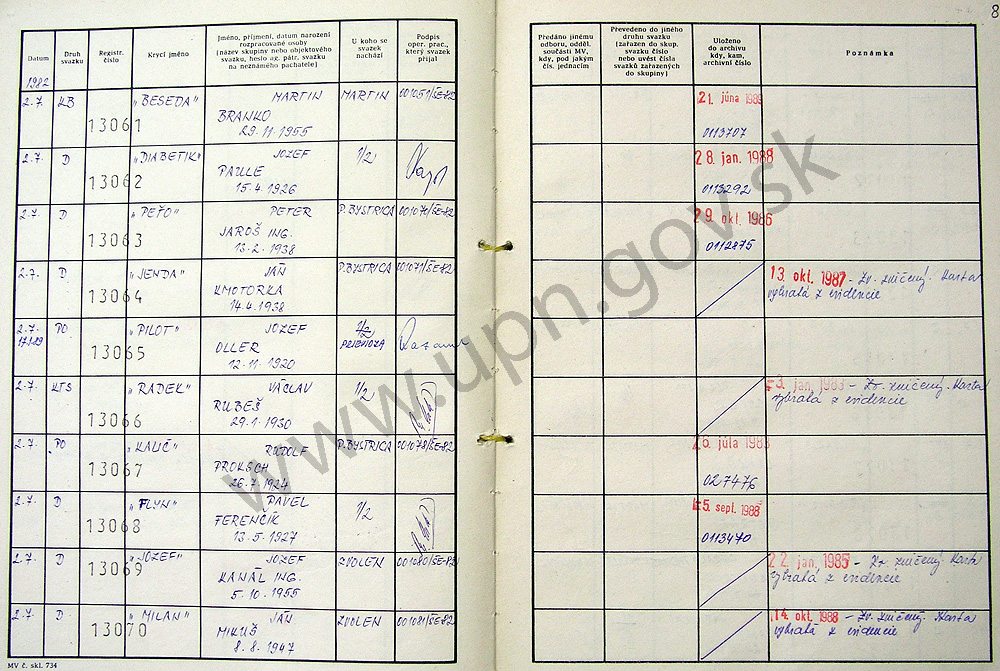 8
Datum
Druh svazku
Registr. číslo
Krycí jméno
Jméno, příjmení, datum narození
rozpracované osoby
(název skupiny nebo objektového
svazku, heslo ag. pátr. svazku
na neznámého pachatele)
U koho se
svazek
nachází
Podpis
oper. prac.,
který svazek
přijal
Předáno jinému
odboru, odděl.
součásti MV,
kdy, pod jakým
čís. jednacím
Převedeno do jiného
druhu svazku
(zařazen do skup.
svazku číslo
nebo uvést čísla
svazků zařazených
do skupiny)
Uloženo
do archivu
kdy, kam,
archivní číslo
Poznámka
1982
2.7 KB 13061 "BESEDA" MARTIN MARTIN 001051/ŠE-82
BRANKO
29.11.1955
21. júna 1989
0113707
2.7. D 13062 "DIABETIK" JOZEF 1/2
PAULE
15.4.1926
28. jan. 1988
0113292
2.7. D 13063 "PEŤO" PETER P.BYSTRICA 001070/ŠE-82
JAROŠ ING.
13.2.1938
29. okt. 1986
0112875
2.7. D 13064 "JENDA" JÁN P.BYSTRICA 001071/ŠE-82
KMOTORKA
14.4.1938
13. okt. 1987 - Zv. zničený. Karta
vybratá z evidencie
2.7. PO 13065 "PILOT" JOZEF 1/2
OLLER
12.11.1920
2.7. KTS 13066 "RADEK" VÁCLAV 1/2
RUBEŠ
29.1.1930
jan. 1988 - Zv. zničený. Karta
vybratá z evidencie
2.7. PO 13067 RUDOLF P.BYSTRICA 001078/ŠE-82
PROKSCH
26.7.1924
júla 1988
027476
2.7. D 13068 "FLYN" PAVEL 1/2
FERENČÍK
13.5.1927
5. sept. 1988
0113470
2.7. D 13069 "JOZEF" JOZEF ZVOLEN 001080/ŠE-82
KANÁL ING.
5.10.1955
22. jan. 1985 - Zv. zničený. Karta
vybratá z evidencie
2.7 D 13070 "MILAN" JÁN ZVOLEN 001081/ŠE82
MIKUŠ
8.8.1947
14. okt. 1988 - Zv. zničený. Karta
vybratá z evidencie
MV č. skl. 734
www.upn.gov.sk